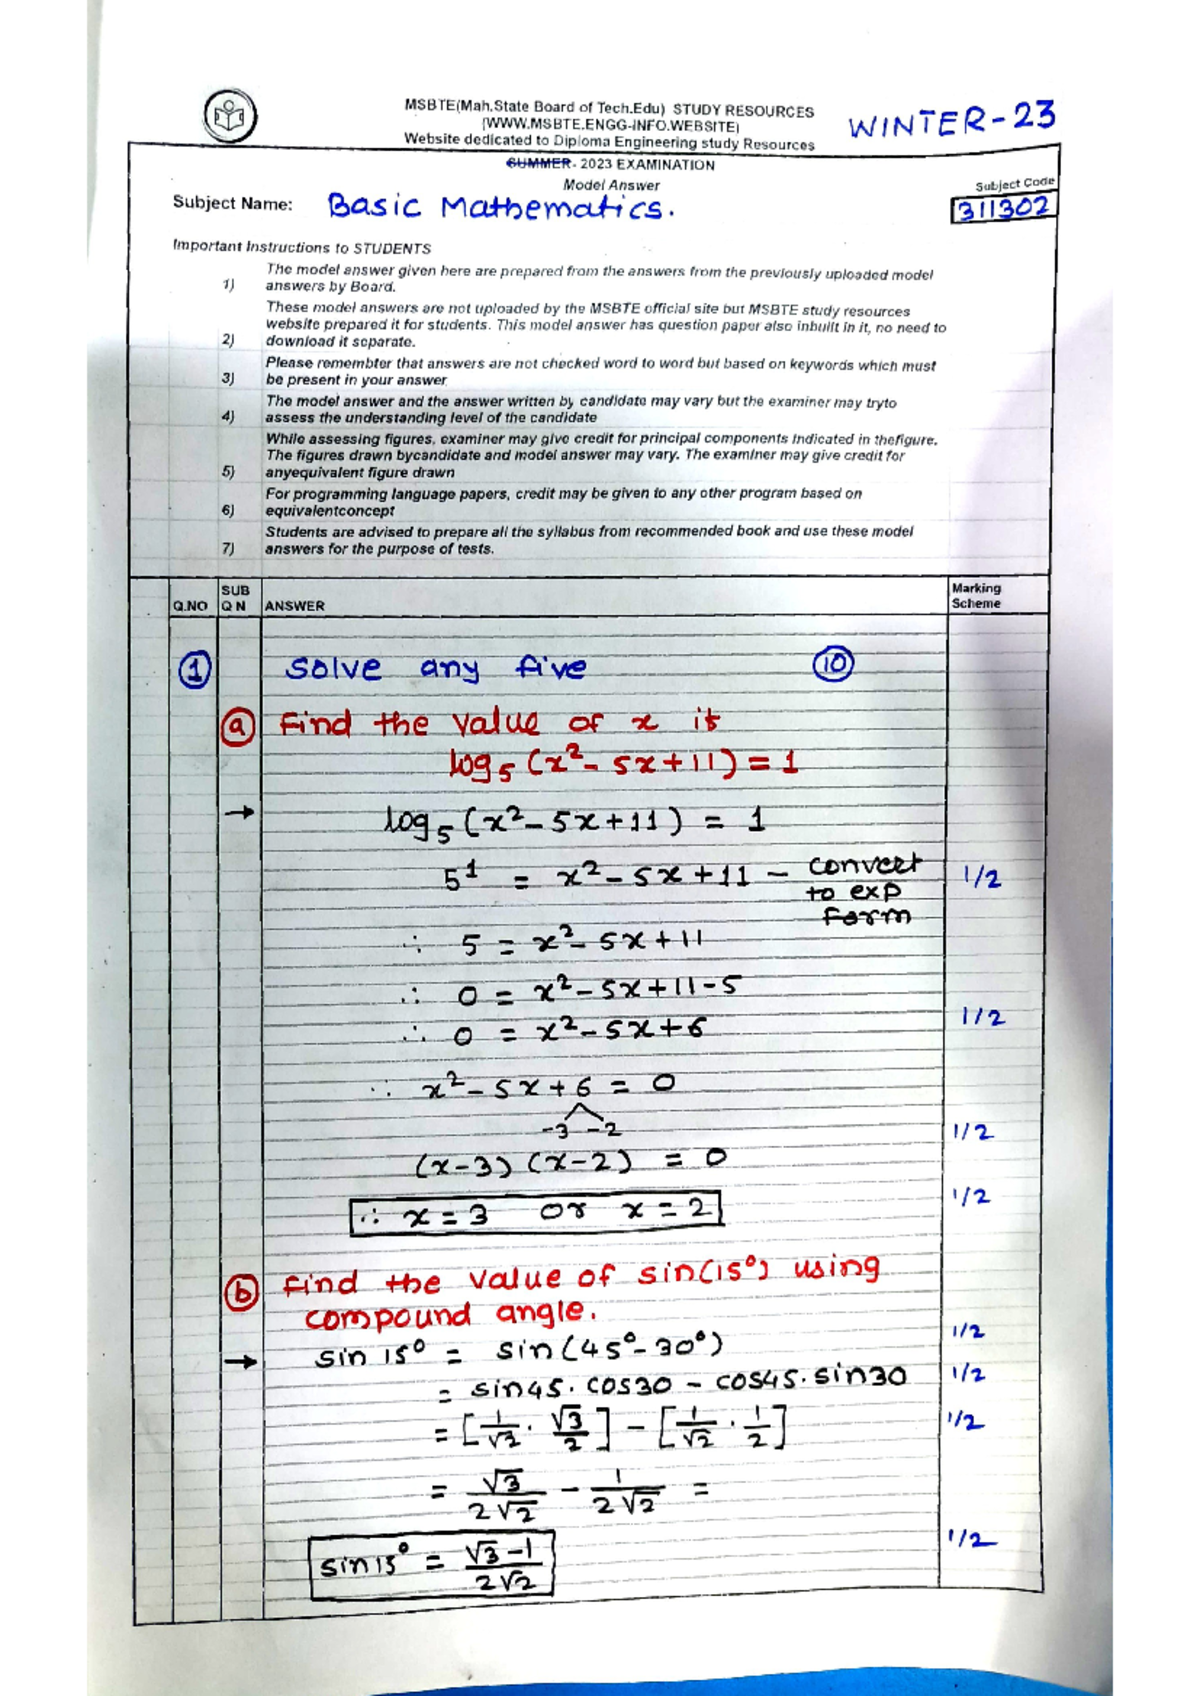 MSBTE(Mah.State Board of Tech.Edu) STUDY RESOURCES
(WWW.MSBTE.ENGG-INFO.WEBSITE)
Website dedicated to Diploma Engineering study Resources
WINTER-23
SUMMER- 2023 EXAMINATION
Model Answer
Subject Name: Basic Mathematics.
Subject Code
311302
Important Instructions to STUDENTS
1) The model answer given here are prepared from the answers from the previously uploaded model
answers by Board.
2) These model answers are not uploaded by the MSBTE official site but MSBTE study resources
website prepared it for students. This model answer has question paper also inbuilt in it, no need to
download it separate.
3) Please remembter that answers are not checked word to word but based on keywords which must
be present in your answer
4) The model answer and the answer written by candidate may vary but the examiner may tryto
assess the understanding level of the candidate
5) While assessing figures, examiner may give credit for principal components indicated in thefigure.
The figures drawn bycandidate and model answer may vary. The examiner may give credit for
anyequivalent figure drawn
6) For programming language papers, credit may be given to any other program based on
equivalentconcept
7) Students are advised to prepare all the syllabus from recommended book and use these model
answers for the purpose of tests.
Q.NO SUB Q N ANSWER Marking Scheme
1 Solve any five 10
a Find the value of x if
log₅(x²- 5x+11) = 1
→ log₅(x²-5x+11) = 1
5¹ = x²-5x+11 - convert to exp form 1/2
∴ 5 = x²-5x+11
∴ 0 = x²-5x+11-5
∴ 0 = x²-5x+6 1/2
∴ x²-5x+6 = 0
-3 -2 1/2
(x-3)(x-2) = 0
∴ x=3 or x=2 1/2
b find the value of sin(15°) using
compound angle.
→ sin 15° = sin(45°-30°) 1/2
= sin45.cos30 - cos45.sin30 1/2
= [1/√2 · √3/2] - [1/√2 · 1/2] 1/2
= √3/2√2 - 1/2√2 =
sin15° = √3-1/2√2 1/2